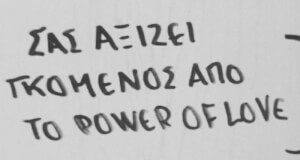 ΣΑΣ ΑΞΙΖΕΙ
ΓΚΟΜΕΝΟΣ ΑΠΟ
ΤΟ POWER OF LOVE